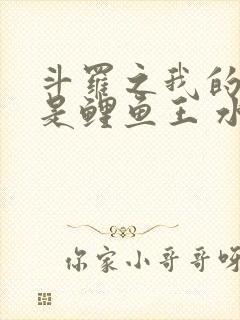 斗罗之我的
是鲤鱼王 水
你家小哥哥呀